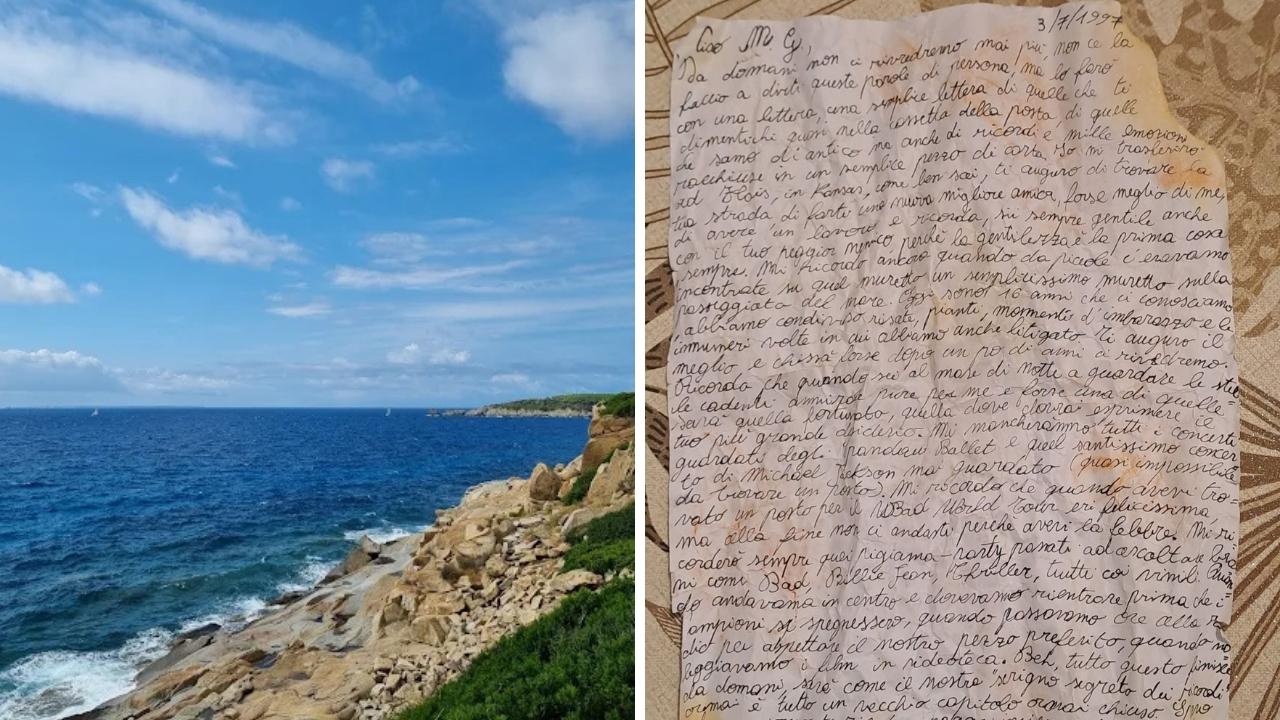 3/7/1997
Ciao M. G,
Da domani non ci rivedremo mai più, non ce la
faccio a dirti queste parole di persona, ma lo farò
con una lettera, una semplice lettera di quelle che ti
dimentichi quasi nella cassetta della posta, di quelle
che sanno di antico ma anche di ricordi e mille emozioni
racchiuse in un semplice pezzo di carta. Io mi trasferirò
ad in Kansas, come ben sai, ti auguro di trovare la
tua strada di farti una nuova migliore amica, forse meglio di me,
di avere un lavoro e ricorda, sii sempre gentile anche
con il tuo peggior nemico perché la gentilezza è la prima cosa
sempre. Mi ricordo ancora quando da piccole c'eravamo
incontrate su quel muretto un semplicissimo muretto sulla
passeggiata del mare. Oggi sono 16 anni che ci conosciamo
abbiamo condiviso risate, pianti, momenti d'imbarazzo e le
innumeri volte in cui abbiamo anche litigato. Ti auguro il
meglio, e chissà forse dopo un po di anni ci rivedremo.
Ricorda che quando sei al mare di notte a guardare le stel
le cadenti, ammirale pure per me e forse una di quelle
sarà quella fortunata, quella dove potrai esprimere il
tuo più grande desiderio. Mi mancheranno tutti i concerti
guardati degli Spandau Ballet e quel santissimo concer
to di Michael Jackson mai guardato (quasi impossibile
da trovare un posto). Mi ricordo che quando avevi tro=
vato un posto per il Bad World Tour eri felicissima
ma alla fine non ci andasti perché avevi la febbre. Mi ri
corderò sempre quei pigiama-party passati ad ascoltare
ni come Bad, Billie Jean, Thriller, tutte così simili. Quan
do andavamo in centro e dovevamo rientrare prima che i
ampioni si spegnessero, quando passavamo ore alla ra
dio per aspettare il nostro pezzo preferito, quando no
leggiavamo i film in videoteca. Beh, tutto questo finisce
da domani, sarà come il nostro scrigno segreto dei ricordi
ormai è tutto un vecchio capitolo ormai chiuso.